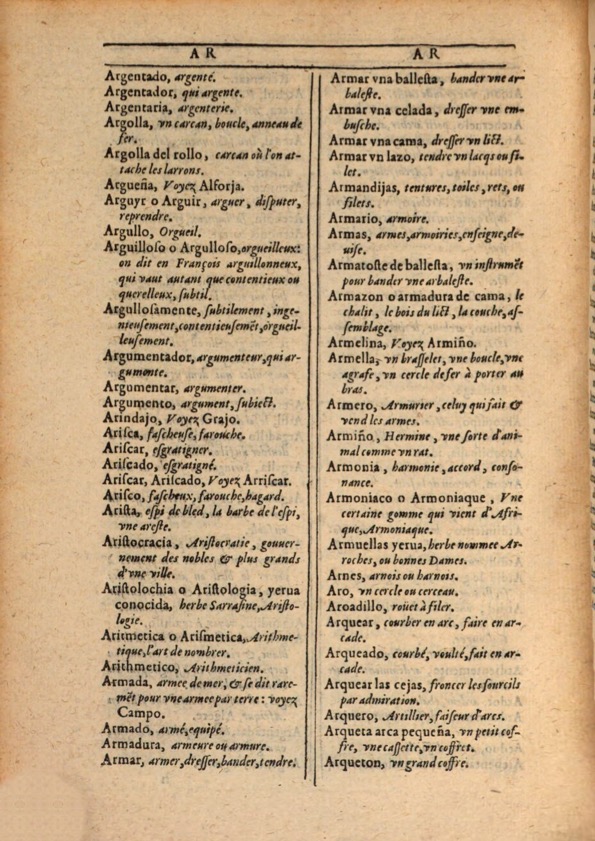 AR
Argentado, argenté.
Argentador, qui argente.
Argentaria, argenterie.
Argolla, vn carcan, boucle, anneau de
fer.
Argolla del rollo, carcan où l'on at-
tache les larrons.
Argueña, Voyez Alforja.
Arguyr o Arguir, arguer, disputer,
reprendre.
Argullo, Orgueil.
Arguilloso o Argulloso, orgueilleux:
on dit en François arguillonneux,
qui vaut autant que contentieux ou
querelleux, subtil.
Argullosamente, subtilement, inge-
nieusement, contentieusemẽt, orgueil-
leusement.
Argumentador, argumenteur, qui ar-
gumente.
Argumentar, argumenter.
Argumento, argument, subiect.
Arindajo, Voyez Grajo.
Arisca, fascheuse, farouche.
Ariscar, esgratigner.
Ariscado, esgratigné.
Ariscar, Ariscado, Voyez Arriscar.
Arisco, fascheux, farouche, hagard.
Arista, espi de bled, la barbe de l'espi,
vne areste.
Aristocracia, Aristocratie, gouuer-
nement des nobles & plus grands
d'vne ville.
Aristolochia o Aristologia, yerua
conocida, herbe Sarrasine, Aristo-
logie.
Aritmetica o Arismetica, Arithme-
tique, l'art de nombrer.
Arithmetico, Arithmeticien.
Armada, armee de mer, & se dit rare-
mẽt pour vne armee par terre: voyez
Campo.
Armado, armé, equipé.
Armadura, armeure ou armure.
Armar, armer, dresser, bander, tendre.
AR
Armar vna ballesta, bander vne ar-
baleste.
Armar vna celada, dresser vne em-
busche.
Armar vna cama, dresser vn lict.
Armar vn lazo, tendre vn lacqs ou fi-
let.
Armandijas, tentures, toiles, rets, ou
filets.
Armario, armoire.
Armas, armes, armoiries, enseigne, de-
uise.
Armatoste de ballesta, vn instrumẽt
pour bander vne arbaleste.
Armazon o armadura de cama, le
chalit, le bois du lict, la couche, as-
semblage.
Armelina, Voyez Armiño.
Armella, vn brasselet, vne boucle, vne
agrafe, vn cercle de fer à porter au
bras.
Armero, Armurier, celuy qui fait &
vend les armes.
Armiño, Hermine, vne sorte d'ani-
mal comme vn rat.
Armonia, harmonie, accord, conso-
nance.
Armoniaco o Armoniaque, Vne
certaine gomme qui vient d'Afri-
que, Armoniaque.
Armuellas yerua, herbe nommee Ar-
roches, ou bonnes Dames.
Arnes, arnois ou harnois.
Aro, vn cercle ou cerceau.
Aroadillo, roüet à filer.
Arquear, courber en arc, faire en ar-
cade.
Arqueado, courbé, voulté, fait en ar-
cade.
Arquear las cejas, froncer les sourcils
par admiration.
Arquero, Artillier, faiseur d'arcs.
Arqueta arca pequeña, vn petit cof-
fre, vne cassette, vn coffret.
Arqueton, vn grand coffre.